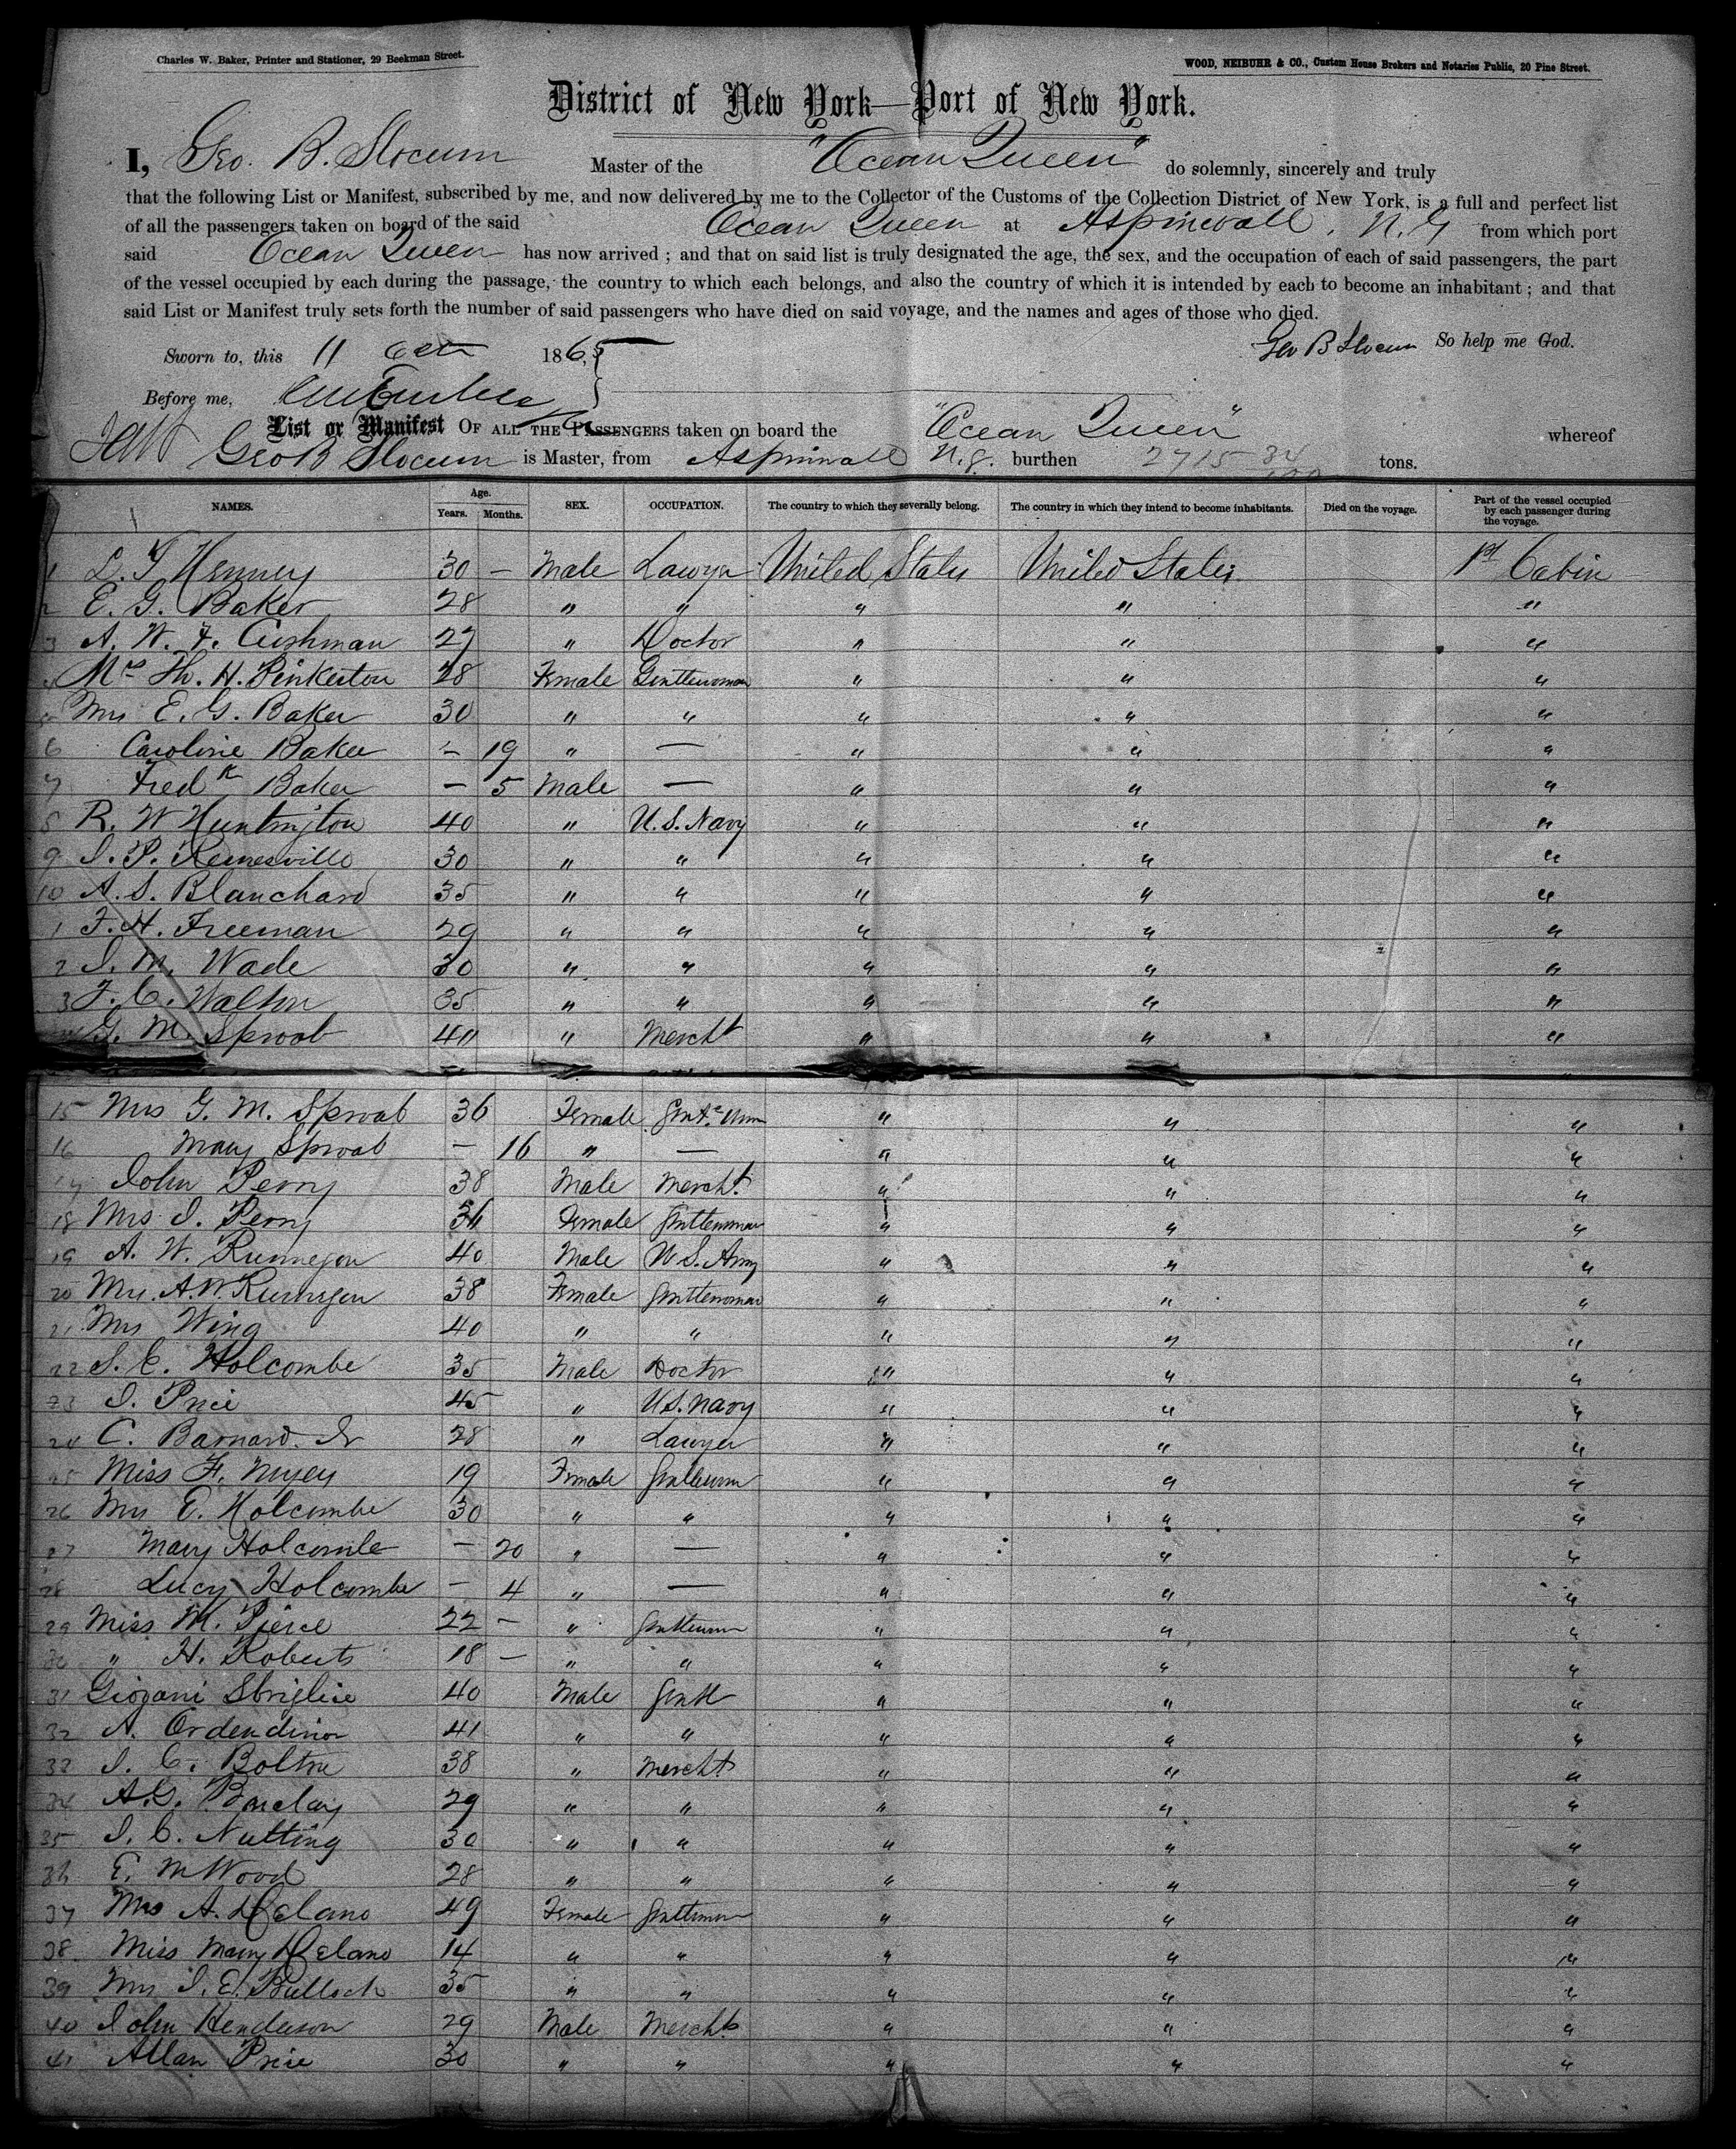 Charles W. Baker, Printer and Stationer, 29 Beekman Street.
WOOD, NEIBUHR & CO., Custom House Brokers and Notaries Public, 20 Pine Street.
District of New York—Port of New York.
I, Geo. B. Slocum Master of the "Ocean Queen" do solemnly, sincerely and truly
that the following List or Manifest, subscribed by me, and now delivered by me to the Collector of the Customs of the Collection District of New York, is a full and perfect list
of all the passengers taken on board of the said Ocean Queen at Aspinwall, N. G from which port
said Ocean Queen has now arrived; and that on said list is truly designated the age, the sex, and the occupation of each of said passengers, the part
of the vessel occupied by each during the passage, the country to which each belongs, and also the country of which it is intended by each to become an inhabitant; and that
said List or Manifest truly sets forth the number of said passengers who have died on said voyage, and the names and ages of those who died.
Geo B Slocum So help me God.
Sworn to, this 11 Oct 1865,
Before me,
List or Manifest OF ALL THE PASSENGERS taken on board the "Ocean Queen" whereof
Geo B Slocum is Master, from Aspinwall N.g. burthen 2715 34/100 tons.
NAMES. Age. Years. Months. SEX. OCCUPATION. The country to which they severally belong. The country in which they intend to become inhabitants. Died on the voyage. Part of the vessel occupied by each passenger during the voyage.
1 L. T Kenney 30 — Male Lawyer United States United States 1st Cabin
2 E. G. Baker 28 " " " " "
3 A. W. F. Cushman 27 " Doctor " " "
4 Mrs Th. H. Pinkerton 28 Female Gentlewoman " " "
5 Mrs E. G. Baker 30 " " " " "
6 Caroline Baker — 19 " — " " "
7 Fredk Baker — 5 Male — " " "
8 R. W Huntington 40 " U. S. Navy " " "
9 J. P. 30 " " " " "
10 A. S. Blanchard 35 " " " " "
1 F. H. Freeman 29 " " " " "
2 J. M. Wade 30 " " " " "
3 F. C. Walton 35 " " " " "
G. M. Sproat 40 " Mercht " " "
15 Mrs G. M. Sproat 36 Female " " "
16 Mary Sproat — 16 " — " " "
17 John Perry 38 Male Mercht. " " "
18 Mrs J. Perry 36 Female Gentlewoman " " "
19 A. W. 40 Male U S. Army " " "
20 Mrs. A. W. 38 Female Gentlewoman " " "
21 Mrs Wing 40 " " " " "
22 S. C. Holcombe 35 Male Doctor " " "
23 J. Price 45 " U S. Navy " " "
24 C. Barnard. Jr 28 " Lawyer " " "
25 Miss F. 19 Female " " "
26 Mrs E. Holcombe 30 " " " " "
27 Mary Holcombe — 20 " — " " "
28 Lucy Holcombe — 4 " — " " "
29 Miss M. Pierce 22 — " " " "
30 " H. Roberts 18 — " " " " "
31 Giovani 40 Male Gentl " " "
32 A. 41 " " " " "
33 J. C. Bolton 38 " Mercht " " "
34 A. G. Barclay 29 " " " " "
35 J. C. Nutting 30 " " " " "
36 E. M Wood 28 " " " " "
37 Mrs A. Delano 49 Female " " "
38. Miss Mary Delano 14 " " " " "
39 Mrs J. E. Bulloch 35 " " " " "
40 John Henderson 29 Male Mercht " " "
41 Allan Price 30 " " " " "